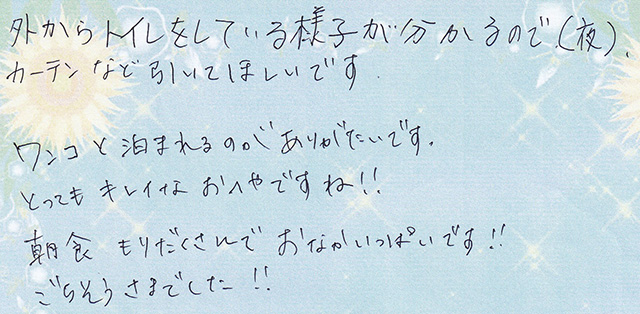 外からトイレをしている様子が分かるので(夜)、
カーテンなど引いてほしいです。
ワンコと泊まれるのがありがたいです。
とってもキレイなおへやですね!!
朝食もりだくさんでおなかいっぱいです!!
ごちそうさまでした!!